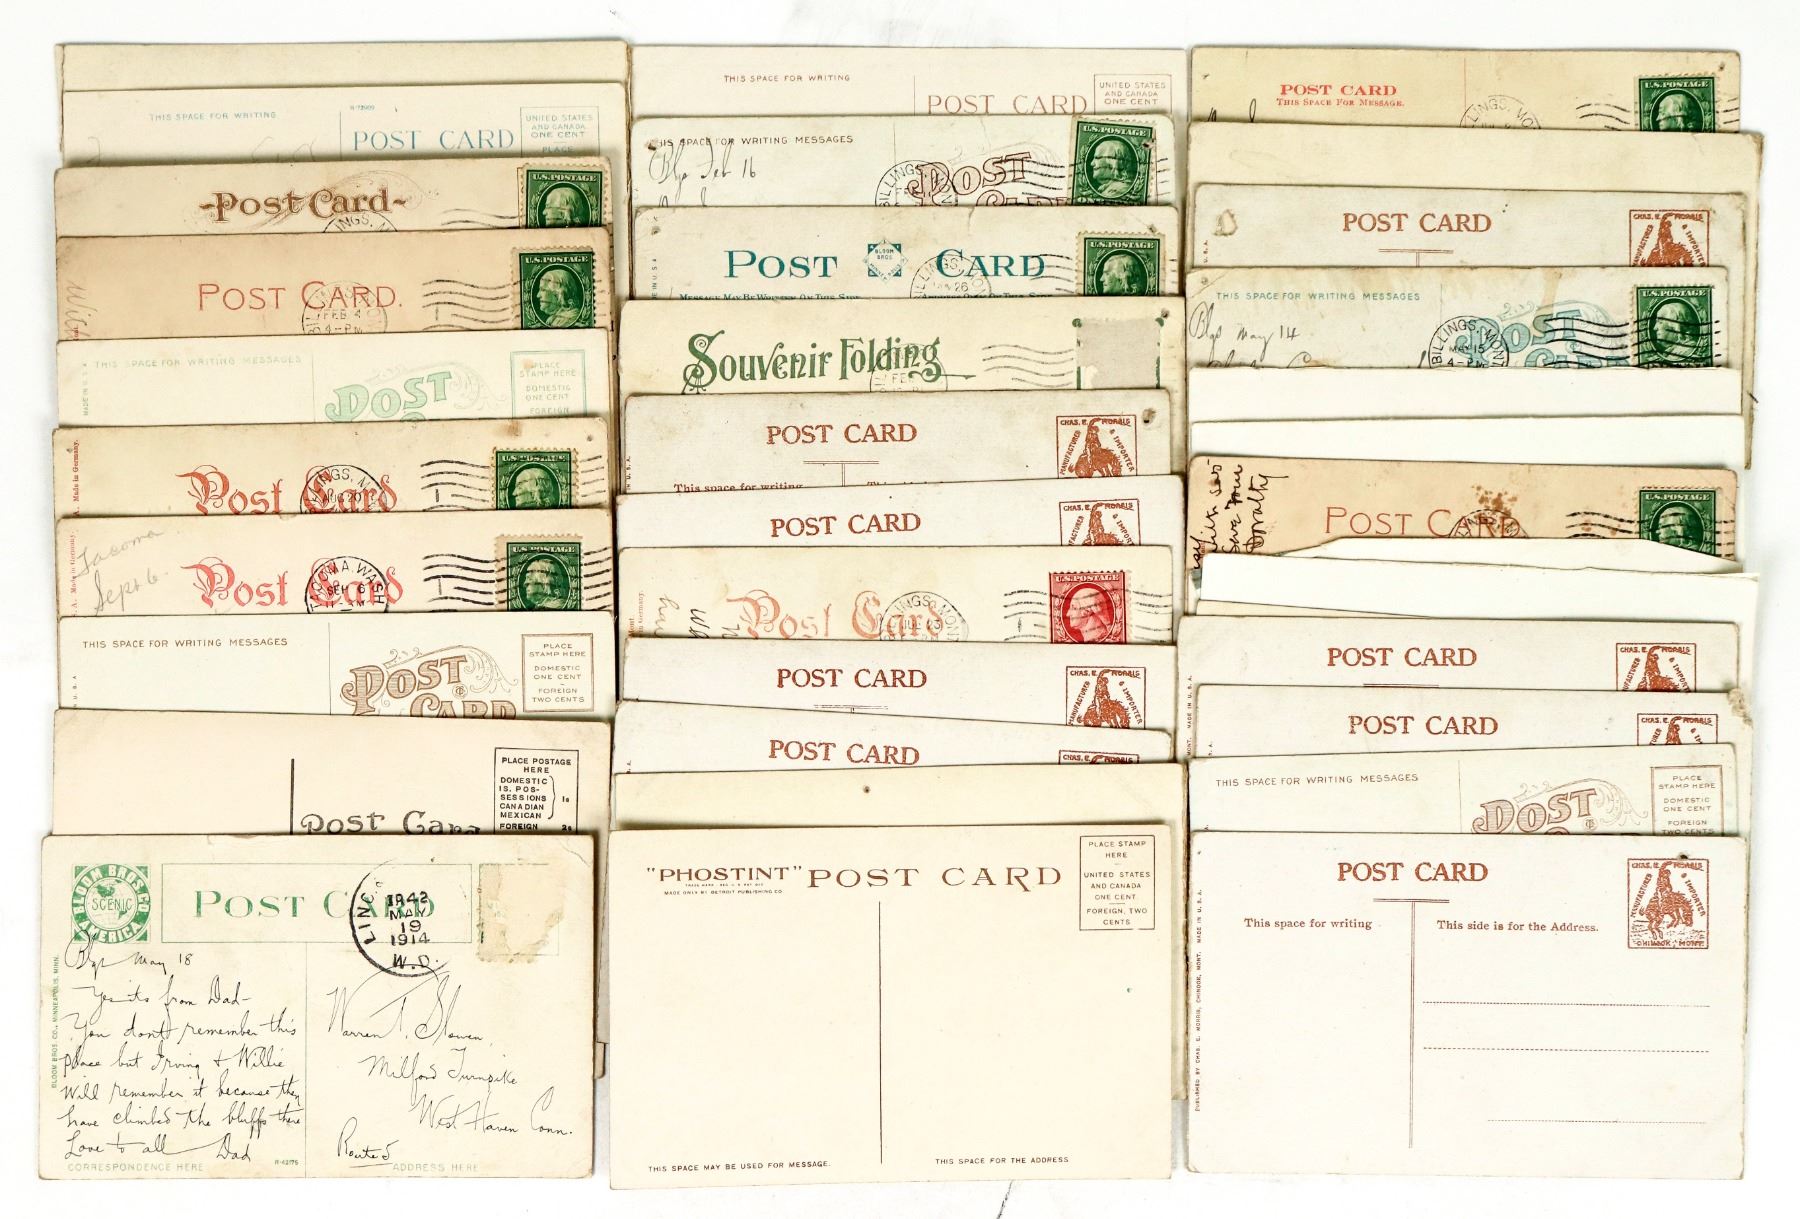 THIS SPACE FOR WRITING
R-72909
POST CARD
UNITED STATES
AND CANADA
ONE CENT
PLACE
Post Card
U.S. POSTAGE
POST CARD.
FEB 4
4-PM
U.S. POSTAGE
THIS SPACE FOR WRITING MESSAGES
MADE IN U.S.A.
POST
PLACE
STAMP HERE
DOMESTIC
ONE CENT
FOREIGN
Made in Germany.
Post Card
U.S. POSTAGE
Made in Germany.
Tacoma
Sept 6
Post Card
TACOMA, WASH.
SEP 6
U.S. POSTAGE
THIS SPACE FOR WRITING MESSAGES
POST
CARD
PLACE
STAMP HERE
DOMESTIC
ONE CENT
FOREIGN
TWO CENTS
Post Card
PLACE POSTAGE
HERE
DOMESTIC
IS. POS-
SESSIONS
CANADIAN
MEXICAN
1c
FOREIGN 2c
BLOOM BROS. CO.
SCENIC
AMERICA
POST CARD
MAY
19
1914
W.D.
Blgs May 18
Yes its from Dad-
You don't remember this
place but Irving & Willie
will remember it because they
have climbed the bluffs there
Love to all Dad
Warren T. Slowen,
Milford Turnpike
West Haven Conn.
Route 5
BLOOM BROS. CO., MINNEAPOLIS, MINN.
CORRESPONDENCE HERE
R-42175
ADDRESS HERE
THIS SPACE FOR WRITING
POST CARD
UNITED STATES
AND CANADA
ONE CENT
THIS SPACE FOR WRITING MESSAGES
Blgs Feb 16
POST
CARD
BILLINGS,
U.S. POSTAGE
POST CARD
BLOOM
BROS
MESSAGE MAY BE WRITTEN ON THIS SIDE
26
U.S. POSTAGE
Souvenir Folding
FEB
POST CARD
This space for writing
CHAS. E. MORRIS
MANUFACTURER & IMPORTER
POST CARD
CHAS. E. MORRIS
MANUFACTURER & IMPORTER
Post Card
U.S. POSTAGE
POST CARD
CHAS. E. MORRIS
MANUFACTURER & IMPORTER
POST CARD
CHAS. E. MORRIS
"PHOSTINT" POST CARD
MADE ONLY BY DETROIT PUBLISHING CO.
PLACE STAMP
HERE
UNITED STATES
AND CANADA
ONE CENT
FOREIGN, TWO
CENTS
THIS SPACE MAY BE USED FOR MESSAGE.
THIS SPACE FOR THE ADDRESS
POST CARD
THIS SPACE FOR MESSAGE.
BILLINGS, MON
U.S. POSTAGE
POST CARD
CHAS. E. MORRIS
MANUFACTURER & IMPORTER
THIS SPACE FOR WRITING MESSAGES
Blgs May 14
POST
CARD
BILLINGS, MONT
MAY 15
4-PM
U.S. POSTAGE
POST CARD
U.S. POSTAGE
POST CARD
CHAS. E. MORRIS
MANUFACTURER & IMPORTER
POST CARD
CHAS. E. MORRIS
THIS SPACE FOR WRITING MESSAGES
POST
PLACE
STAMP HERE
DOMESTIC
ONE CENT
FOREIGN
TWO CENTS
POST CARD
This space for writing
This side is for the Address.
MANUFACTURER & IMPORTER
CHAS. E. MORRIS
CHINOOK, MONT.
PUBLISHED BY CHAS. E. MORRIS, CHINOOK, MONT. MADE IN U.S.A.